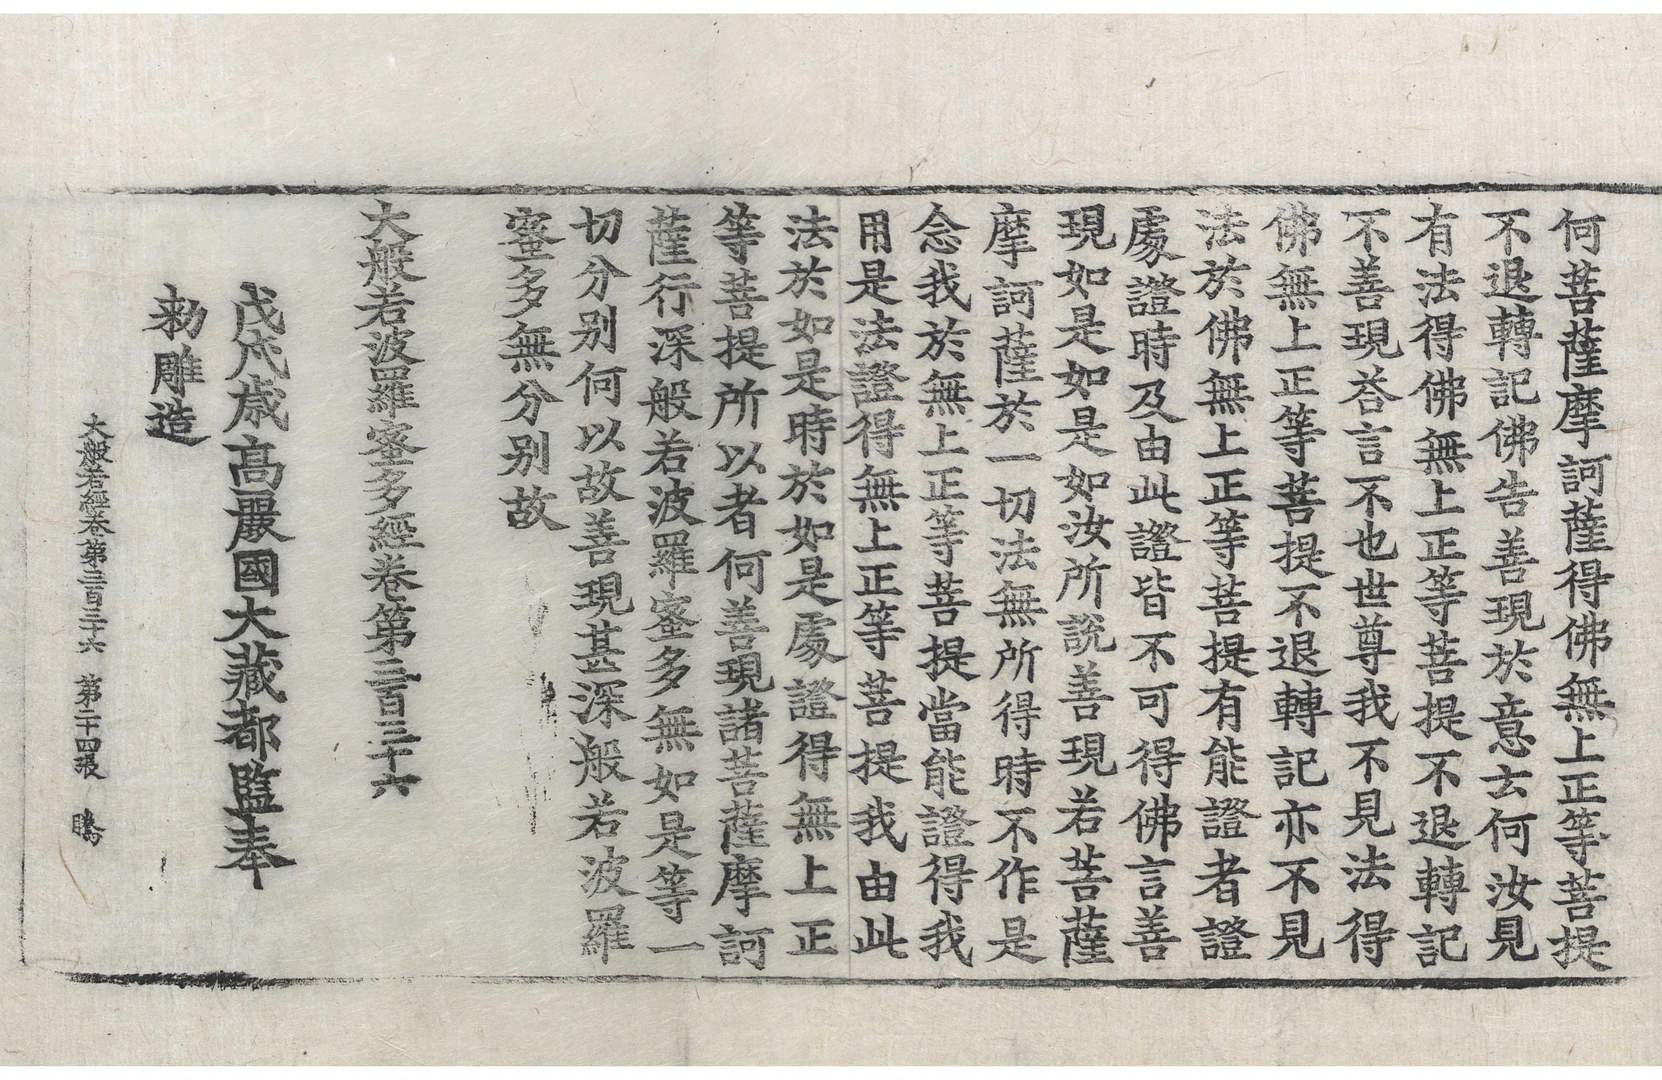 何菩薩摩訶薩得佛無上正等菩提
不退轉記佛告善現於意云何汝見
有法得佛無上正等菩提不退轉記
不善現荅言不也世尊我不見法得
佛無上正等菩提不退轉記亦不見
法於佛無上正等菩提有能證者證
處證時及由此證皆不可得佛言善
現如是如是如汝所說善現若菩薩
摩訶薩於一切法無所得時不作是
念我於無上正等菩提當能證得我
用是法證得無上正等菩提我由此
法於如是時於如是處證得無上正
等菩提所以者何善現諸菩薩摩訶
薩行深般若波羅蜜多無如是等一
切分別何以故善現甚深般若波羅
蜜多無分別故
大般若波羅蜜多經卷第三百三十六
戊戌歲高麗國大藏都監奉
勑雕造
大般若經卷第三百三十六 第二十四張 騰